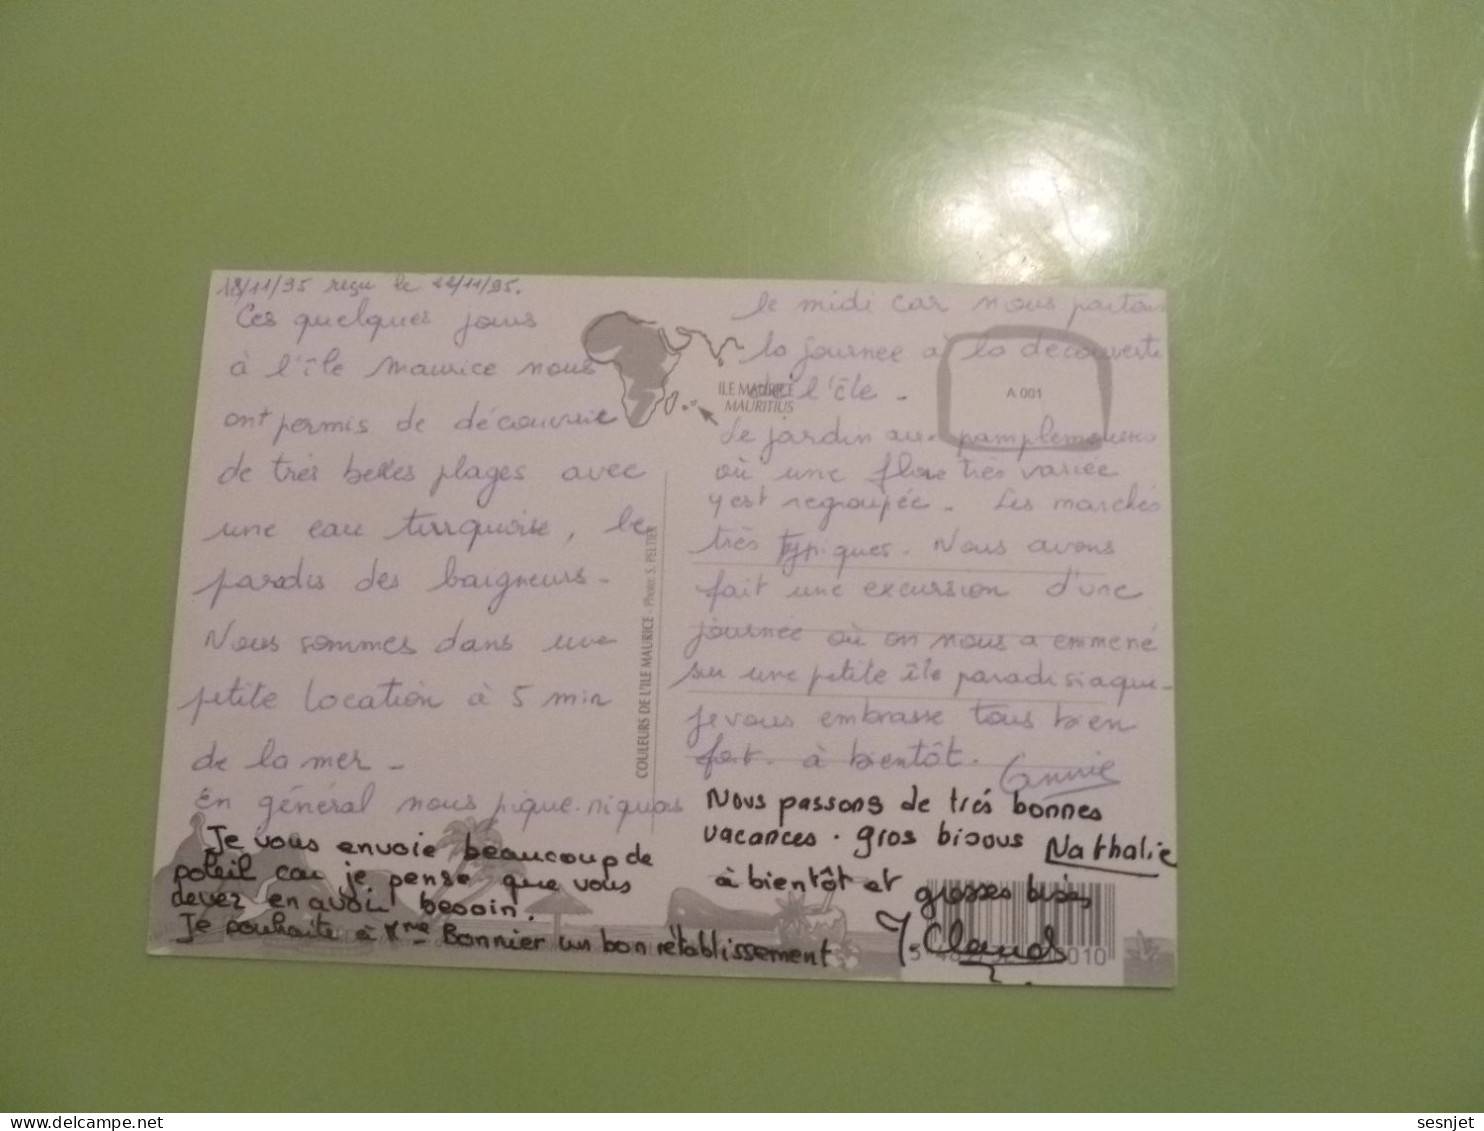 18/11/95 reçu le 22/11/95.
Ces quelques jours
à l'île Maurice nous
ont permis de découvrir
de très belles plages avec
une eau turquoise, le
paradis des baigneurs -
Nous sommes dans une
petite location à 5 min
de la mer -
En général nous pique-niquons
le midi car nous partons
la journée à la découverte
de l'île -
Le jardin aux pamplemousses
où une flore très variée
y est regroupée - Les marchés
très typiques. Nous avons
fait une excursion d'une
journée où on nous a emmené
sur une petite île paradisiaque -
je vous embrasse tous bien
fort. à bientôt. Annie
Nous passons de très bonnes
vacances. gros bisous Nathalie
Je vous envoie beaucoup de
soleil car je pense que vous
devez en avoir besoin.
Je souhaite à Mme Bonnier un bon rétablissement
à bientôt et grosses bises
J. Claude
ILE MAURICE
MAURITIUS
A 001
COULEURS DE L'ILE MAURICE - Photo: S. PELTIER
delcampe.net
sesnjet